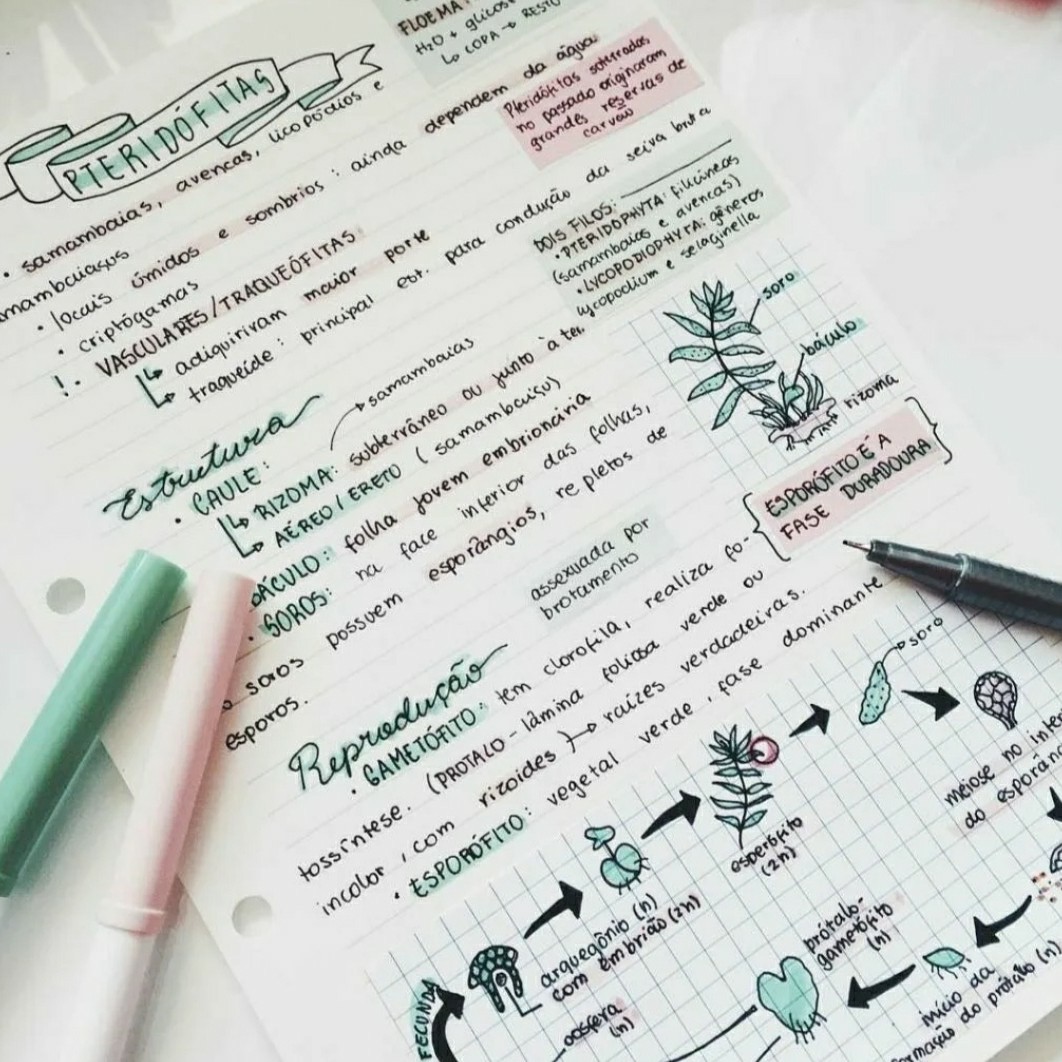 FLOEMA
H₂O + glicos
↳ COPA → RESTO
PTERIDÓFITAS
• samambaias, avencas, licopódios e
mambaiaçus
• locais úmidos e sombrios: ainda dependem da água
• criptógamas
!. VASCULARES/TRAQUEÓFITAS
↳ adiquiriram maior porte
↳ traqueíde: principal est. para condução da seiva bruta
Pteridófitas soterradas
no passado originaram
grandes reservas de
carvão
DOIS FILOS:
• PTERIDOPHYTA: filicíneas
(samambaias e avencas)
• LYCOPODIOPHYTA: gêneros
lycopodium e selaginella
soro
báculo
rizoma
Estrutura
• CAULE:
→ samambaias
↳ RIZOMA: subterrâneo ou junto à ter.
↳ AÉREO/ERETO (samambaiaçu)
BÁCULO: folha jovem embrionária
• SOROS: na face inferior das folhas,
soros possuem esporângios, repletos de
esporos.
assexuada por
brotamento
ESPORÓFITO É A
FASE DURADOURA
Reprodução
• GAMETÓFITO: tem clorofila, realiza fo-
tossíntese. (PROTALO - lâmina foliosa verde ou
incolor, com rizoides) → raízes verdadeiras.
• ESPORÓFITO: vegetal verde, fase dominante
soro
meiose no inte
do esporân
esporófito
(2n)
arquegônio (n)
com embrião (2n)
oosfera
(n)
FECUNDA
prótalo-
gametófito
(n)
início da
formação do prótalo (n)